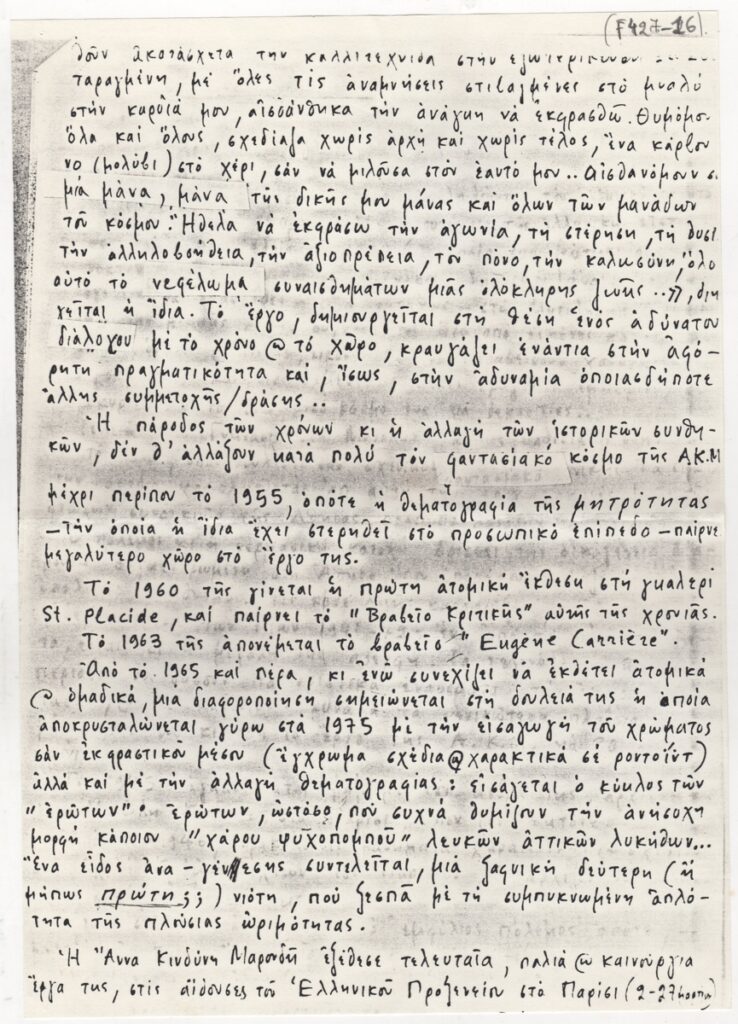 (F427-16)
θοῦν ἀκατάσχετα τὴν καλλιτέχνιδα στὴν
ταραγμένη, μὲ ὅλες τὶς ἀναμνήσεις στιβαγμένες στὸ μυαλό
στὴν καρδιά μου, αἰσθάνθηκα τὴν ἀνάγκη νὰ ἐκφρασθῶ. Θυμόμο
ὅλα καὶ ὅλους, σχεδίαζα χωρὶς ἀρχὴ καὶ χωρὶς τέλος, ἕνα κάρβου
νο (μολύβι) στὸ χέρι, σὰν νὰ μιλοῦσα στὸν ἑαυτό μου.. Αἰσθανόμουν σ
μιὰ μάνα, μάνα τῆς δικῆς μου μάνας καὶ ὅλων τῶν μανάδων
τοῦ κόσμου. Ἤθελα νὰ ἐκφράσω τὴν ἀγωνία, τὴ στέρηση, τὴ θυσι
τὴν ἀλληλοβοήθεια, τὴν ἀξιοπρέπεια, τὸν πόνο, τὴν καλωσύνη, ὅλο
αὐτὸ τὸ νεφέλωμα συναισθημάτων μιᾶς ὁλόκληρης ζωῆς..», διη
γεῖται ἡ ἴδια. Τὸ ἔργο, δημιουργεῖται στὴ θέση ἑνὸς ἀδύνατου
διάλογου μὲ τὸ χρόνο @ τὸ χῶρο, κραυγάζει ἐνάντια στὴν ἀφό-
ρητη πραγματικότητα καί, ἴσως, στὴν ἀδυναμία ὁποιασδήποτε
ἄλλης συμμετοχῆς/δράσης..
Ἡ πάροδος τῶν χρόνων κι ἡ ἀλλαγὴ τῶν ἱστορικῶν συνθη-
κῶν, δὲν θ' ἀλλάξουν κατὰ πολὺ τὸν φαντασιακό κόσμο τῆς Α.Κ.Μ
μέχρι περίπου τὸ 1955, ὁπότε ἡ θεματογραφία τῆς μητρότητας
– τὴν ὁποία ἡ ἴδια ἔχει στερηθεῖ στὸ προσωπικὸ ἐπίπεδο – παίρνε
μεγαλύτερο χῶρο στὸ ἔργο της.
Τὸ 1960 τῆς γίνεται ἡ πρώτη ἀτομικὴ ἔκθεση στὴ γκαλερὶ
St. Placide, καὶ παίρνει τὸ "Βραβεῖο Κριτικῆς" αὐτῆς τῆς χρονιᾶς.
Τὸ 1963 τῆς ἀπονέμεται τὸ βραβεῖο "Eugène Carrière".
Ἀπὸ τὸ 1965 καὶ πέρα, κι ἐνῶ συνεχίζει νὰ ἐκθέτει ἀτομικὰ
@ ὁμαδικά, μιὰ διαφοροποίηση σημειώνεται στὴ δουλειά της ἡ ὁποία
ἀποκρυσταλώνεται γύρω στὰ 1975 μὲ τὴν εἰσαγωγὴ τοῦ χρώματος
σὰν ἐκφραστικοῦ μέσου (ἔγχρωμα σχέδια @ χαρακτικὰ σὲ ροντοΐντ)
ἀλλὰ καὶ μὲ τὴν ἀλλαγὴ θεματογραφίας: εἰσάγεται ὁ κύκλος τῶν
"ἐρώτων"· ἐρώτων, ὡστόσο, ποὺ συχνὰ θυμίζουν τὴν ἀνήσυχη
μορφὴ κάποιου "χάρου ψυχοπομποῦ" λευκῶν ἀττικῶν λυκήθων...
Ἕνα εἶδος ἀνα-γέννεσης συντελεῖται, μιὰ ξαφνικὴ δεύτερη (ἢ
μήπως πρώτη;;) νιότη, ποὺ ξεσπᾶ μὲ τὴ συμπυκνωμένη ἁπλό-
τητα τῆς πλούσιας ὡριμότητας.
Ἡ Ἄννα Κινδύνη Μαρουδῆ ἐξέθεσε τελευταῖα, παλιὰ @ καινούργια
ἔργα της, στὶς αἴθουσες τοῦ Ἑλληνικοῦ Προξενείου στὸ Παρίσι (2-27